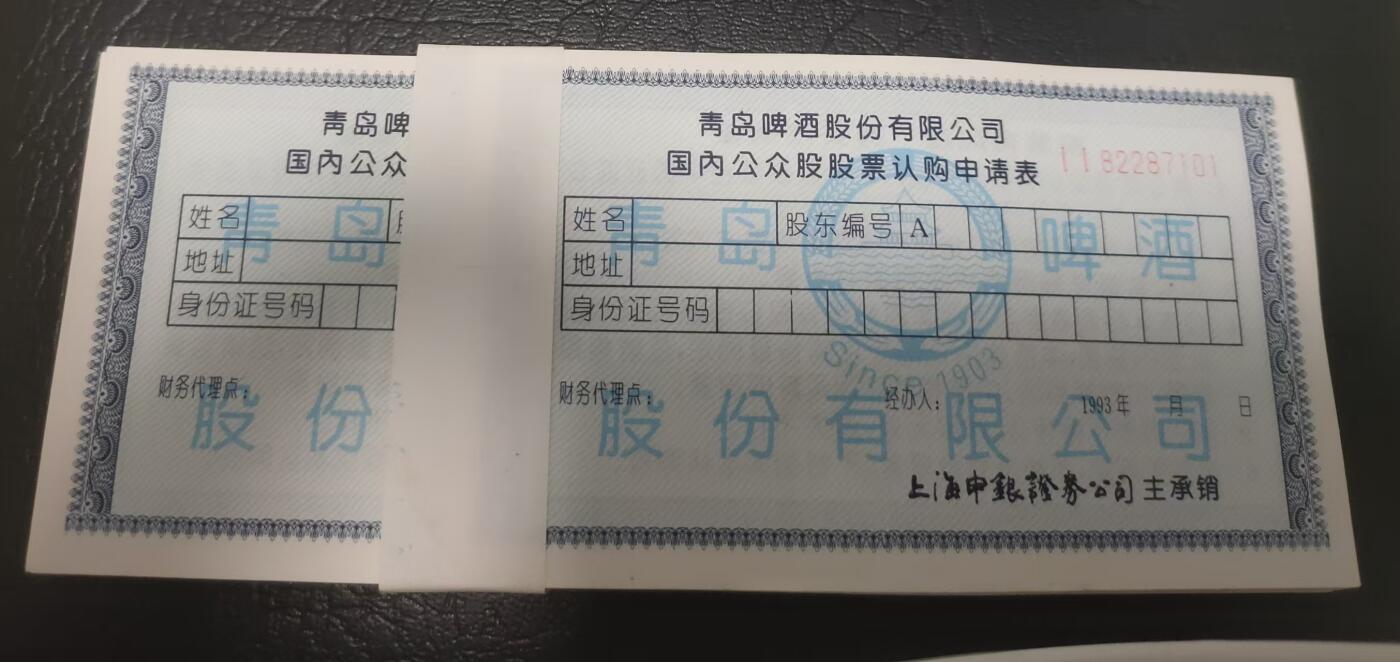 青岛啤
国内公众
姓名
地址
身份证号码
财务代理点：
青岛
股份
青岛啤酒股份有限公司
国内公众股股票认购申请表
1182287101
姓名 股东编号 A
地址
身份证号码
财务代理点： 经办人： 1993年 月 日
青岛啤酒
Since 1903
股份有限公司
上海申銀證券公司 主承销